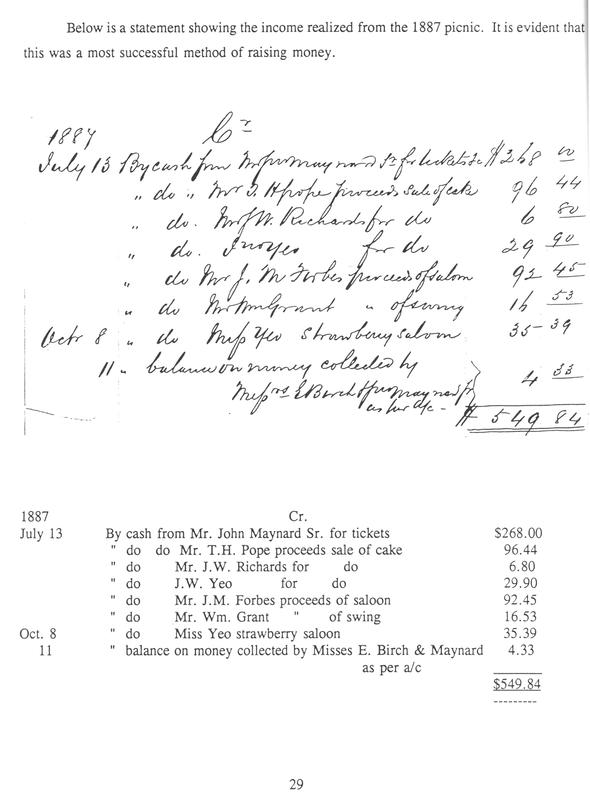 Below is a statement showing the income realized from the 1887 picnic. It is evident that
this was a most successful method of raising money.
1887 Cr
July 13 By cash from Mr Maynard Sr for tickets $268 00
" do " Mr T. H Pope proceeds sale of cake 96 44
" do. Mr J W. Richards for do 6 80
" do. J W Yeo for do 29 90
" do Mr J. M Forbes proceeds of saloon 92 45
" do Mr Wm Grant " of swing 16 53
Octr 8 " do Miss Yeo Strawberry Saloon 35-39
11 " balance on money collected by
Messrs E Birch & Maynard Jr 4 33
as per a/c - $ 549 84
1887 Cr.
July 13 By cash from Mr. John Maynard Sr. for tickets $268.00
" do do Mr. T.H. Pope proceeds sale of cake 96.44
" do Mr. J.W. Richards for do 6.80
" do J.W. Yeo for do 29.90
" do Mr. J.M. Forbes proceeds of saloon 92.45
" do Mr. Wm. Grant " of swing 16.53
Oct. 8 " do Miss Yeo strawberry saloon 35.39
11 " balance on money collected by Misses E. Birch & Maynard 4.33
as per a/c
$549.84
29